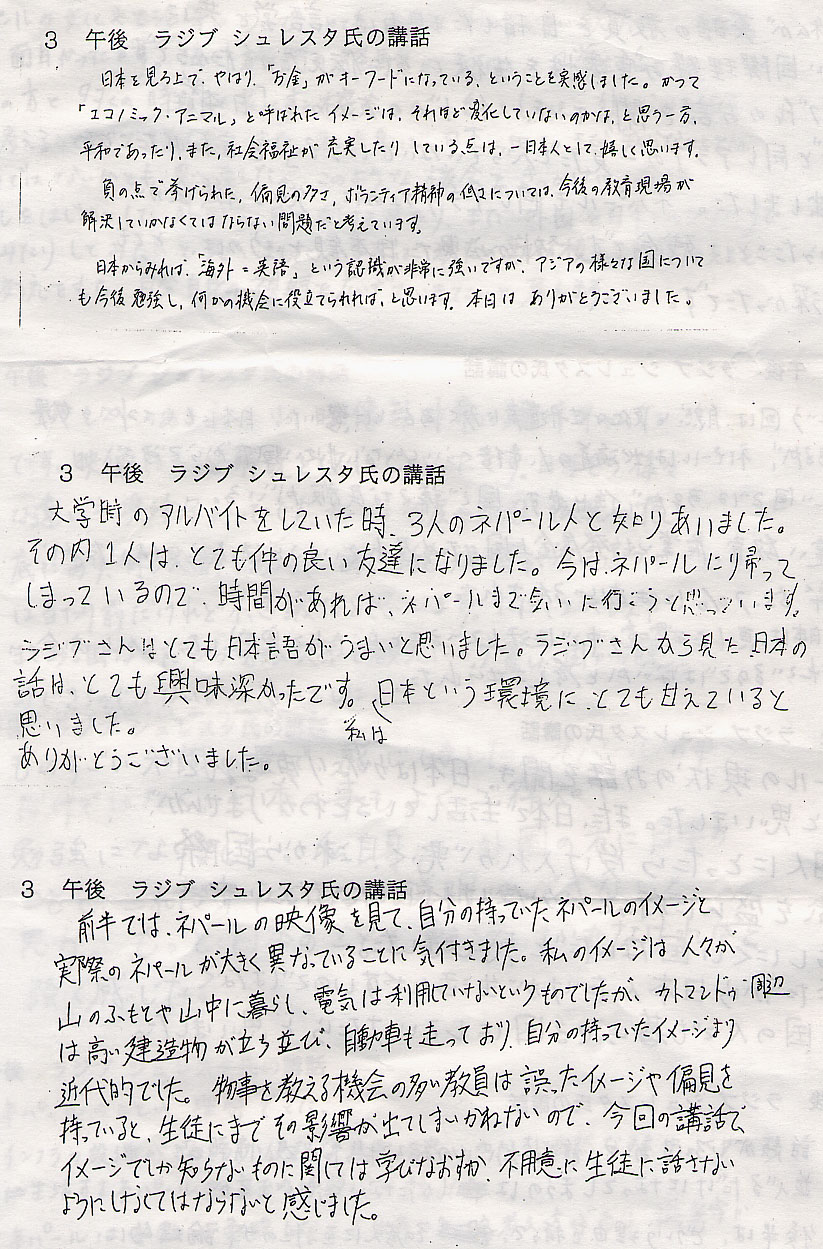 3 午後 ラジブ シュレスタ氏の講話
日本を見る上で、やはり、「お金」がキーワードになっている、ということを実感しました。かつて
「エコノミック・アニマル」と呼ばれたイメージは、それほど変化していないのかな、と思う一方、
平和であったり、また、社会福祉が充実したりしている点は、一日本人として、嬉しく思います。
負の点で挙げられた、偏見の多さ、ボランティア精神の低さについては、今後の教育現場が
解決していかなくてはならない問題だと考えています。
日本からみれば、「海外=英語」という認識が非常に強いですが、アジアの様々な国について
も今後勉強し、何かの機会に役立てられれば、と思います。本日は ありがとうございました。
3 午後 ラジブ シュレスタ氏の講話
大学時のアルバイトをしていた時、3人のネパール人と知りあいました。
その内1人は、とても仲の良い友達になりました。今は、ネパールに帰って
しまっているので、時間があれば、ネパールまで会いに行こうと思っています。
ラジブさんはとても日本語がうまいと思いました。ラジブさんから見た日本の
話は、とても興味深かったです。私は日本という環境に、とても甘えていると
思いました。
ありがとうございました。
3 午後 ラジブ シュレスタ氏の講話
前半では、ネパールの映像を見て、自分の持っていたネパールのイメージと
実際のネパールが大きく異なっていることに気付きました。私のイメージは人々が
山のふもとや山中に暮らし、電気は利用していないというものでしたが、カトマンドゥ周辺
は高い建造物が立ち並び、自動車も走っており、自分の持っていたイメージより
近代的でした。物事を教える機会の多い教員は誤ったイメージや偏見を
持っていると、生徒にまでその影響が出てしまいかねないので、今回の講話で
イメージでしか知らないものに関しては学びなおすか、不用意に生徒に話さない
ようにしなくてはならないと感じました。